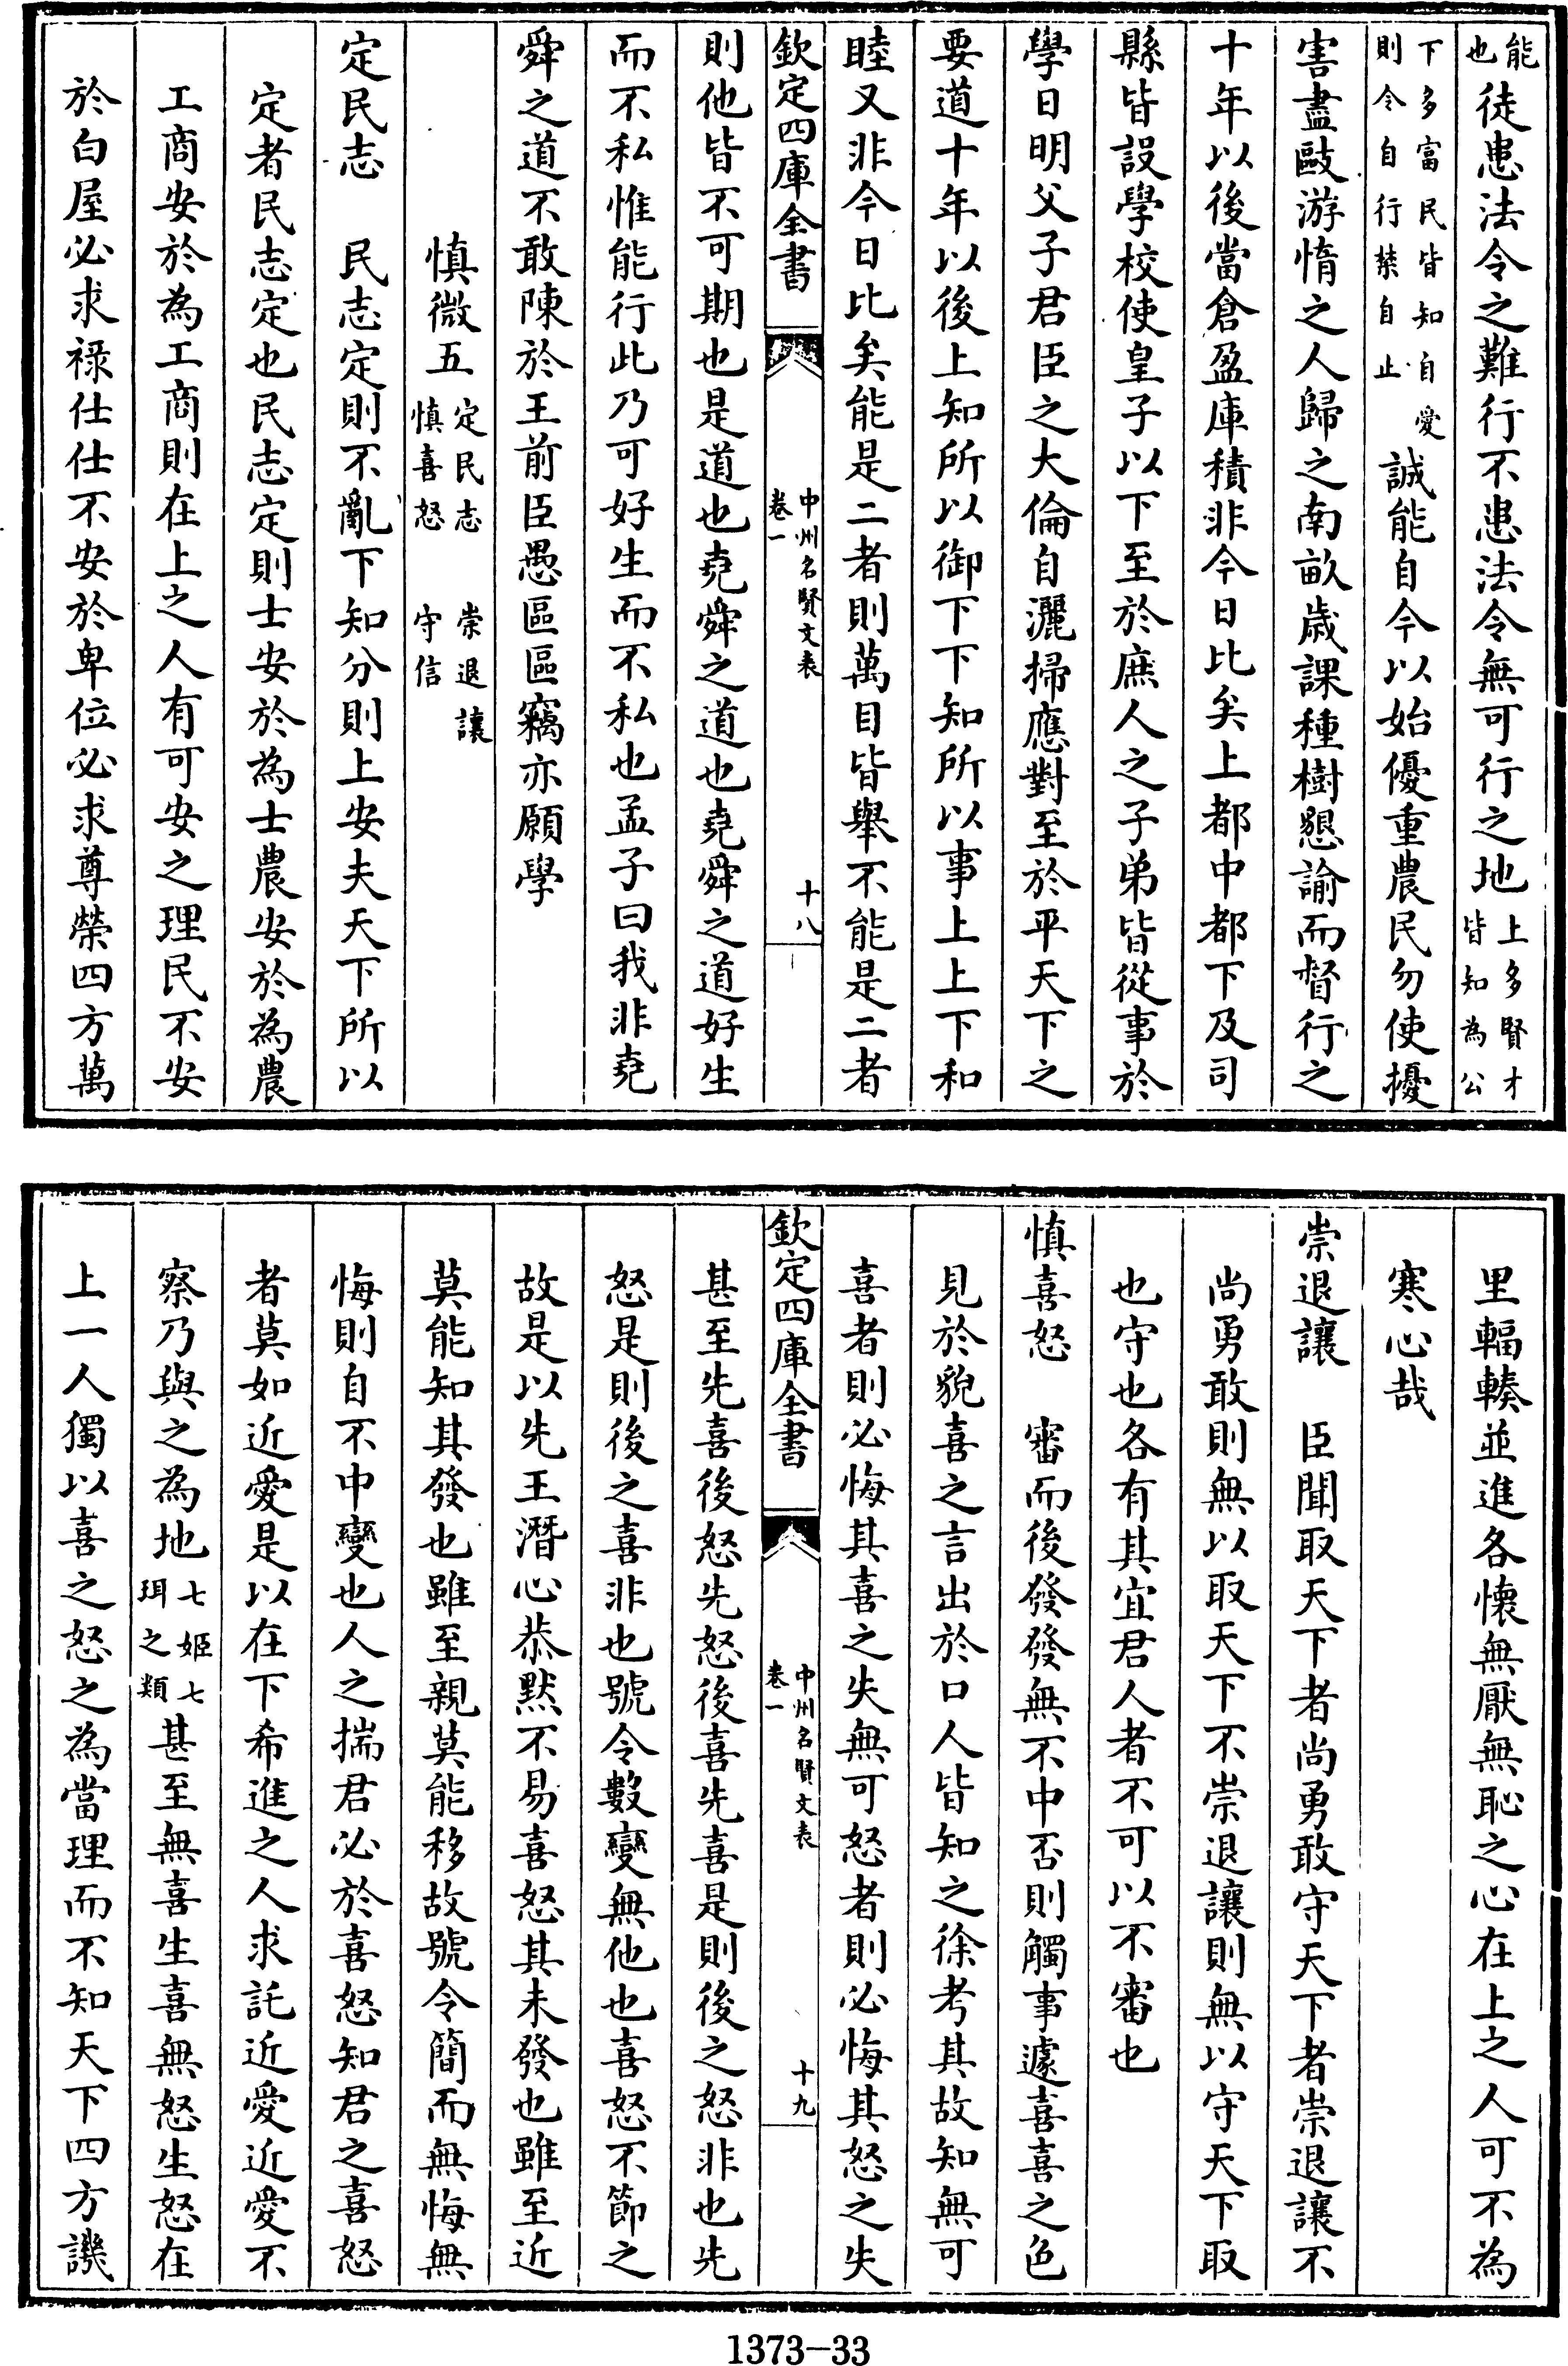 能也徒患法令之難行不患法令無可行之地上多賢才皆知為公
下多富民皆知自愛則令自行禁自止誠能自今以始優重農民勿使擾
害盡敺游惰之人歸之南畝歲課種樹懇諭而督行之
十年以後當倉盈庫積非今日比矣上都中都下及司
縣皆設學校使皇子以下至於庶人之子弟皆從事於
學日明父子君臣之大倫自灑掃應對至於平天下之
要道十年以後上知所以御下下知所以事上上下和
睦又非今日比矣能是二者則萬目皆舉不能是二者
欽定四庫全書 中州名賢文表 卷一 十八
則他皆不可期也是道也堯舜之道也堯舜之道好生
而不私惟能行此乃可好生而不私也孟子曰我非堯
舜之道不敢陳於王前臣愚區區竊亦願學
慎微五 定民志 崇退讓 慎喜怒 守信
定民志 民志定則不亂下知分則上安夫天下所以
定者民志定也民志定則士安於為士農安於為農
工商安於為工商則在上之人有可安之理民不安
於白屋必求祿仕仕不安於卑位必求尊榮四方萬
里輻輳並進各懷無厭無恥之心在上之人可不為
寒心哉
崇退讓 臣聞取天下者尚勇敢守天下者崇退讓不
尚勇敢則無以取天下不崇退讓則無以守天下取
也守也各有其宜君人者不可以不審也
慎喜怒 審而後發發無不中否則觸事遽喜喜之色
見於貌喜之言出於口人皆知之徐考其故知無可
喜者則必悔其喜之失無可怒者則必悔其怒之失
欽定四庫全書 中州名賢文表 卷一 十九
甚至先喜後怒先怒後喜先喜是則後之怒非也先
怒是則後之喜非也號令數變無他也喜怒不節之
故是以先王潛心恭默不易喜怒其未發也雖至近
莫能知其發也雖至親莫能移故號令簡而無悔無
悔則自不中變也人之揣君必於喜怒知君之喜怒
者莫如近愛是以在下希進之人求託近愛近愛不
察乃與之為地七姬七珥之類甚至無喜生喜無怒生怒在
上一人獨以喜之怒之為當理而不知天下四方譏
1373-33